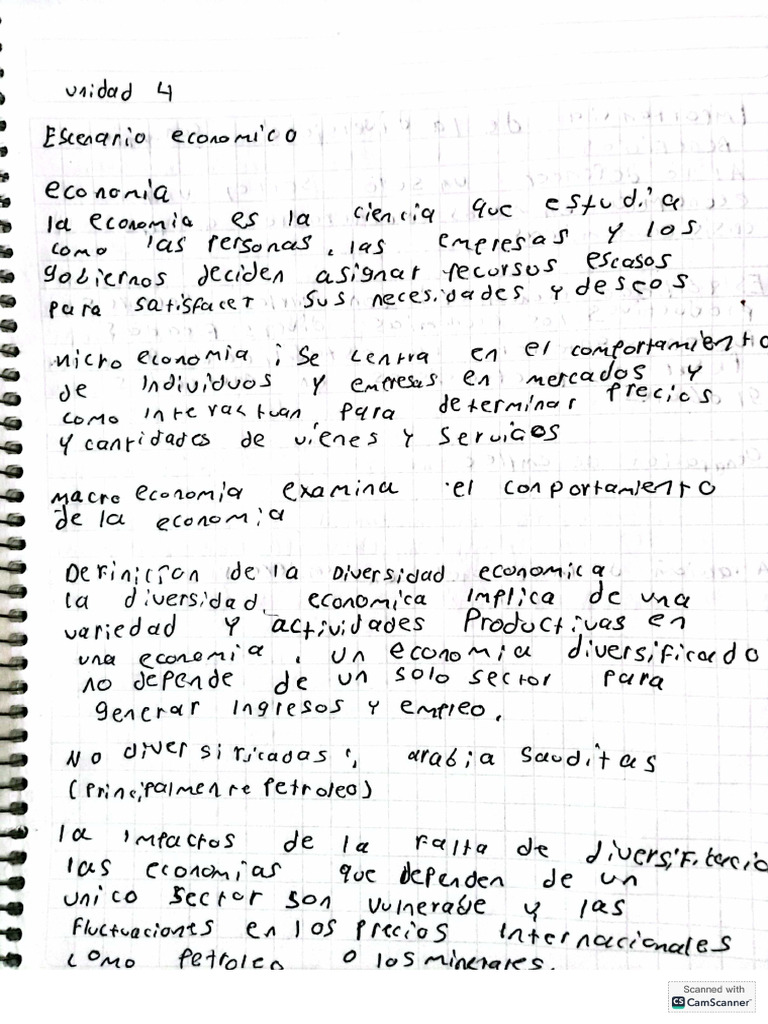 unidad 4
Escenario economico
economia
la economia es la ciencia que estudia
como las personas, las empresas y los
gobiernos deciden asignar recursos escasos
para satisfacer sus necesidades y deseos
micro economia ; Se centra en el comportamiento
de individuos y empresas en mercados y
como interactuan para determinar precios
y cantidades de vienes y servicios
macro economia examina el comportamiento
de la economia
Definicion de la Diversidad economica
la diversidad economica implica de una
variedad y actividades Productivas en
una economia. un economia diversificado
no depende de un solo sector para
generar ingresos y empleo.
No diversificadas ; arabia sauditas
(principalmente petroleo)
la impactos de la falta de
las economias que dependen de un
unico sector son vulnerable y las
fluctuaciones en los precios internacionales
como petroleo o los minerales.
Scanned with
CS CamScanner